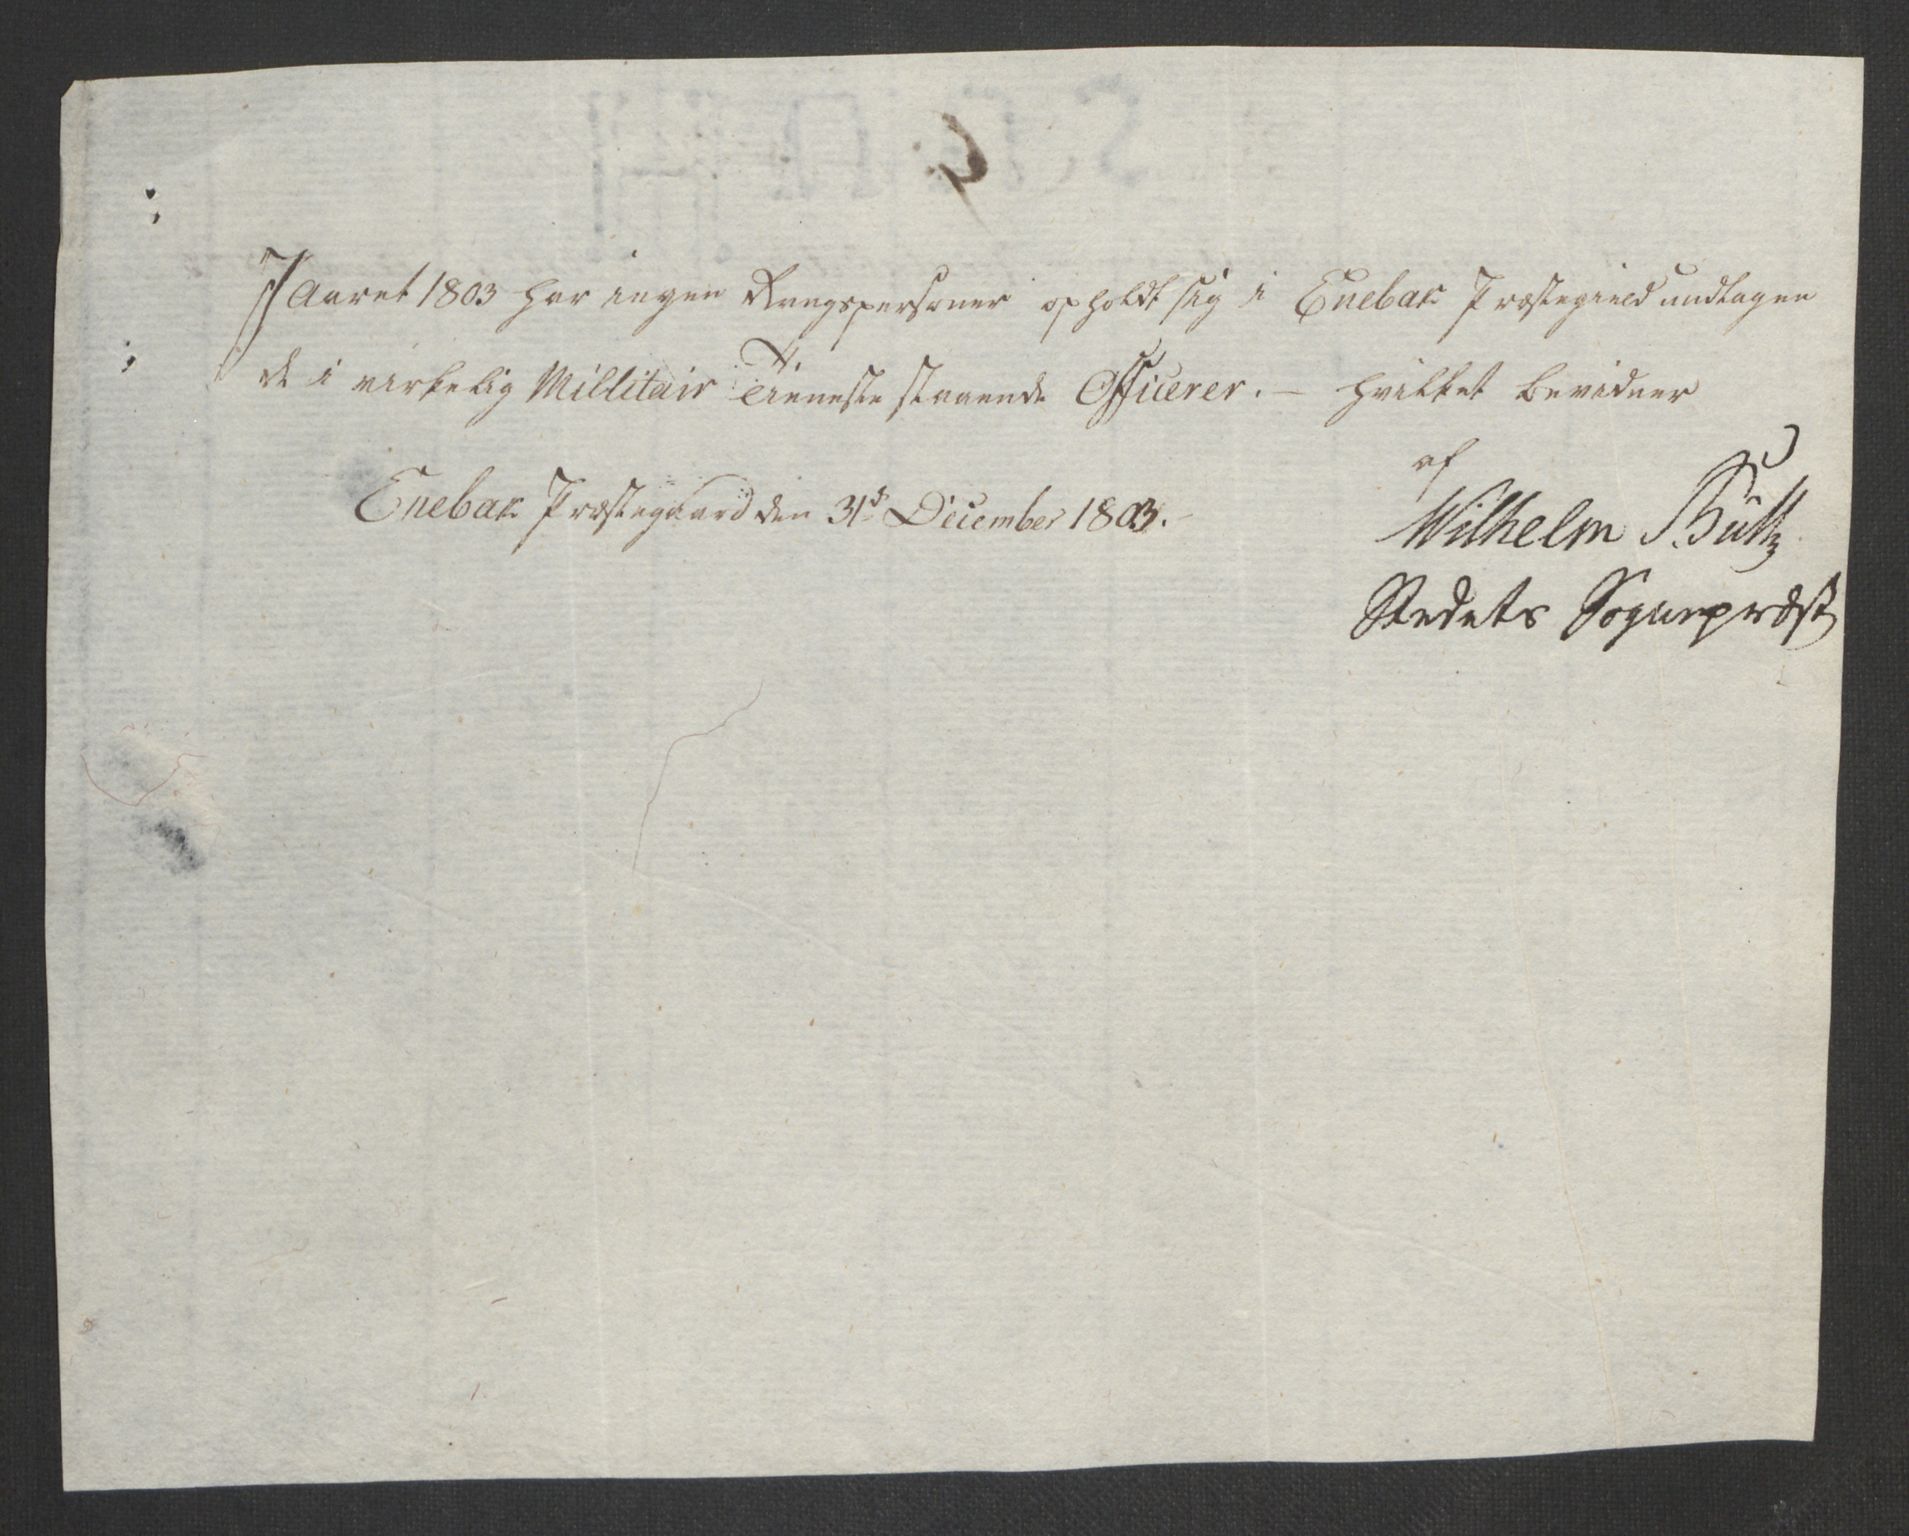 I Aaret 1803 har ingen Rangspersoner opholdt sig i Enebak Præstegield undtagen
de i virkelig Millitair Tieneste staaende Officerer. – hvilket bevidner
af
Enebak Præstegaard den 31d December 1803. –
Wilhelm Bütz
Stedets Sognepræst